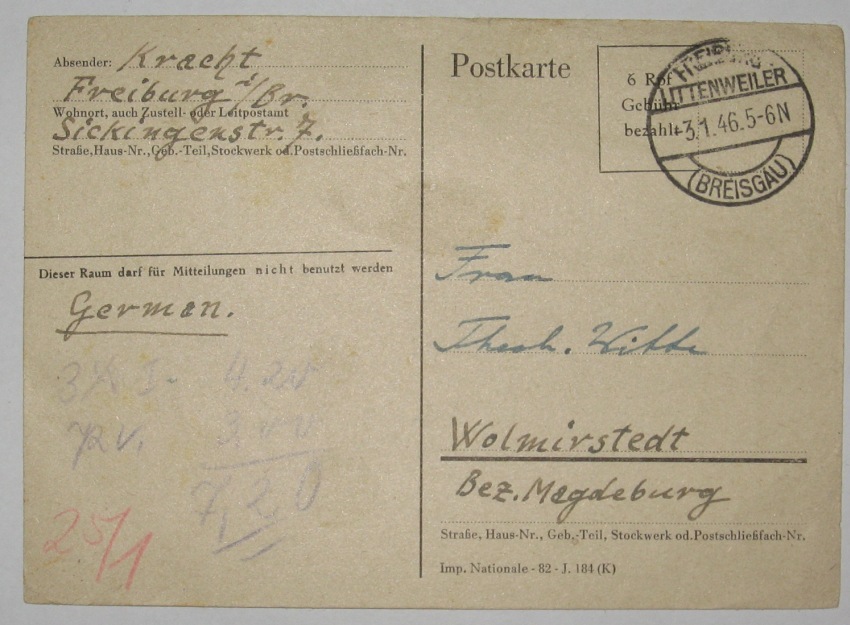 Absender: Kracht
Freiburg i/Br.
Wohnort, auch Zustell- oder Leitpostamt
Sickingenstr. 7.
Straße, Haus-Nr., Geb.-Teil, Stockwerk od. Postschließfach-Nr.
Dieser Raum darf für Mitteilungen nicht benutzt werden
German.
7,20
25/1
Postkarte
6 Rpf
Gebühr
bezahlt
FREIBURG
LITTENWEILER
-3.1.46.5-6N
(BREISGAU)
Frau
Witte
Wolmirstedt
Bez. Magdeburg
Straße, Haus-Nr., Geb.-Teil, Stockwerk od. Postschließfach-Nr.
Imp. Nationale - 82 - J. 184 (K)